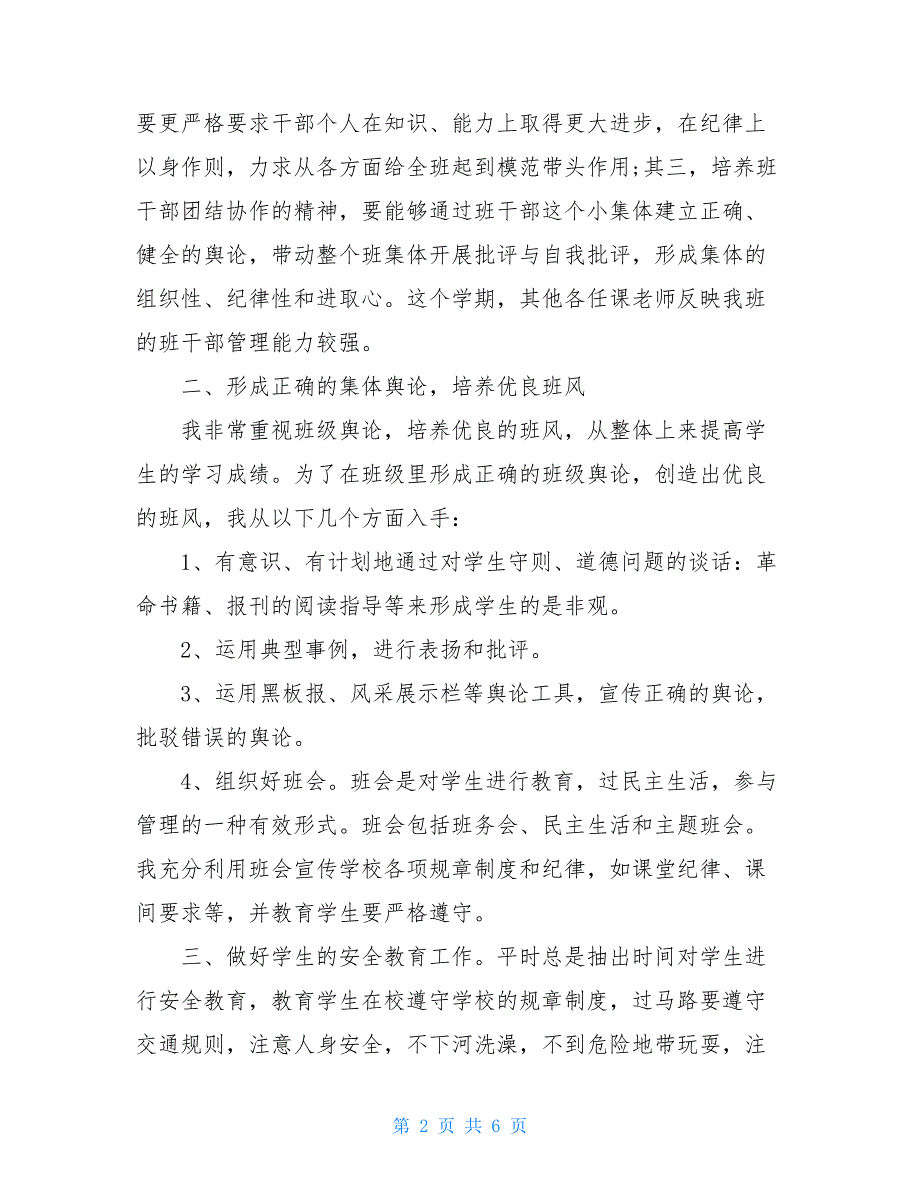 要更严格要求干部个人在知识、能力上取得更大进步，在纪律上
以身作则，力求从各方面给全班起到模范带头作用;其三，培养班
干部团结协作的精神，要能够通过班干部这个小集体建立正确、
健全的舆论，带动整个班集体开展批评与自我批评，形成集体的
组织性、纪律性和进取心。这个学期，其他各任课老师反映我班
的班干部管理能力较强。
二、形成正确的集体舆论，培养优良班风
我非常重视班级舆论，培养优良的班风，从整体上来提高学
生的学习成绩。为了在班级里形成正确的班级舆论，创造出优良
的班风，我从以下几个方面入手：
1、有意识、有计划地通过对学生守则、道德问题的谈话：革
命书籍、报刊的阅读指导等来形成学生的是非观。
2、运用典型事例，进行表扬和批评。
3、运用黑板报、风采展示栏等舆论工具，宣传正确的舆论，
批驳错误的舆论。
4、组织好班会。班会是对学生进行教育，过民主生活，参与
管理的一种有效形式。班会包括班务会、民主生活和主题班会。
我充分利用班会宣传学校各项规章制度和纪律，如课堂纪律、课
间要求等，并教育学生要严格遵守。
三、做好学生的安全教育工作。平时总是抽出时间对学生进
行安全教育，教育学生在校遵守学校的规章制度，过马路要遵守
交通规则，注意人身安全，不下河洗澡，不到危险地带玩耍，注
第 2 页 共 6 页